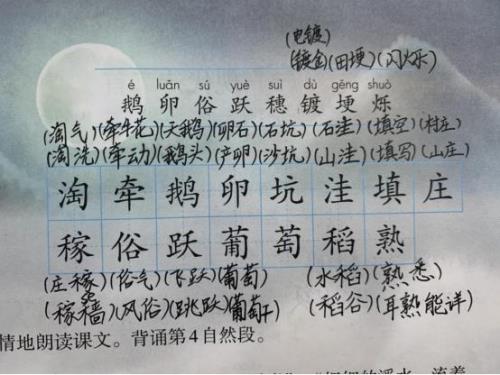 (电镀)
(镀金)(田埂)(闪烁)
é luǎn sú yuè suì dù gěng shuò
鹅 卵 俗 跃 穗 镀 埂 烁
(淘气)(牵牛花)(天鹅)(卵石)(石坑)(石洼)(填空)(村庄)
(淘洗)(牵动)(鹅头)(产卵)(沙坑)(山洼)(填写)(山庄)
淘 牵 鹅 卵 坑 洼 填 庄
稼 俗 跃 葡 萄 稻 熟
(庄稼)(俗气)(飞跃)(葡萄)(水稻)(熟悉)
(稼穑)(风俗)(跳跃)(葡萄干)(稻谷)(耳熟能详)
情地朗读课文。背诵第4自然段。